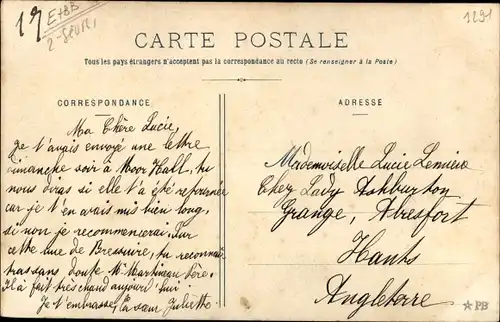 17
E+BB
2-SÈVR.
1291
CARTE POSTALE
Tous les pays étrangers n'acceptent pas la correspondance au recto (Se renseigner à la Poste)
CORRESPONDANCE
Ma Chère Lucie,
Je t'avais envoyé une lettre
dimanche soir à Moor Hall, tu
nous diras si elle t'a été retournée
car je t'en avais mis bien long,
si non je recommencerai. Sur
cette vue de Bressuire, tu reconnaî
tras sans doute Mr Martineau père.
Il a fait très chaud aujourd'hui
Je t'embrasse, ta sœur Juliette
ADRESSE
Mademoiselle Lucie Lemière
Chez Lady Ashburton
Grange, Alresfort
Hants
Angleterre
PB